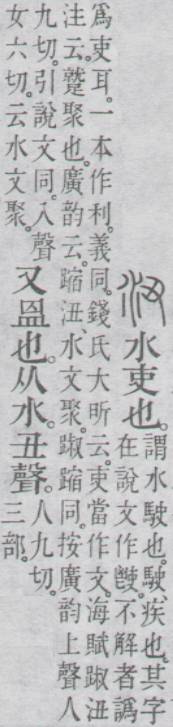 沑水吏也。謂水駛也。駛、疾也。其字
在說文作不解者譌
爲吏耳。一本作利。義同。錢氏大昕云。吏當作文。海賦踧沑
注云。蹙聚也。廣韵云。蹜沑水文聚。踧蹜同。按廣韵上聲人
九切。引說文同。入聲
女六切。云水文聚。
又𥁕也。从水。丑聲。人九切。
三部。